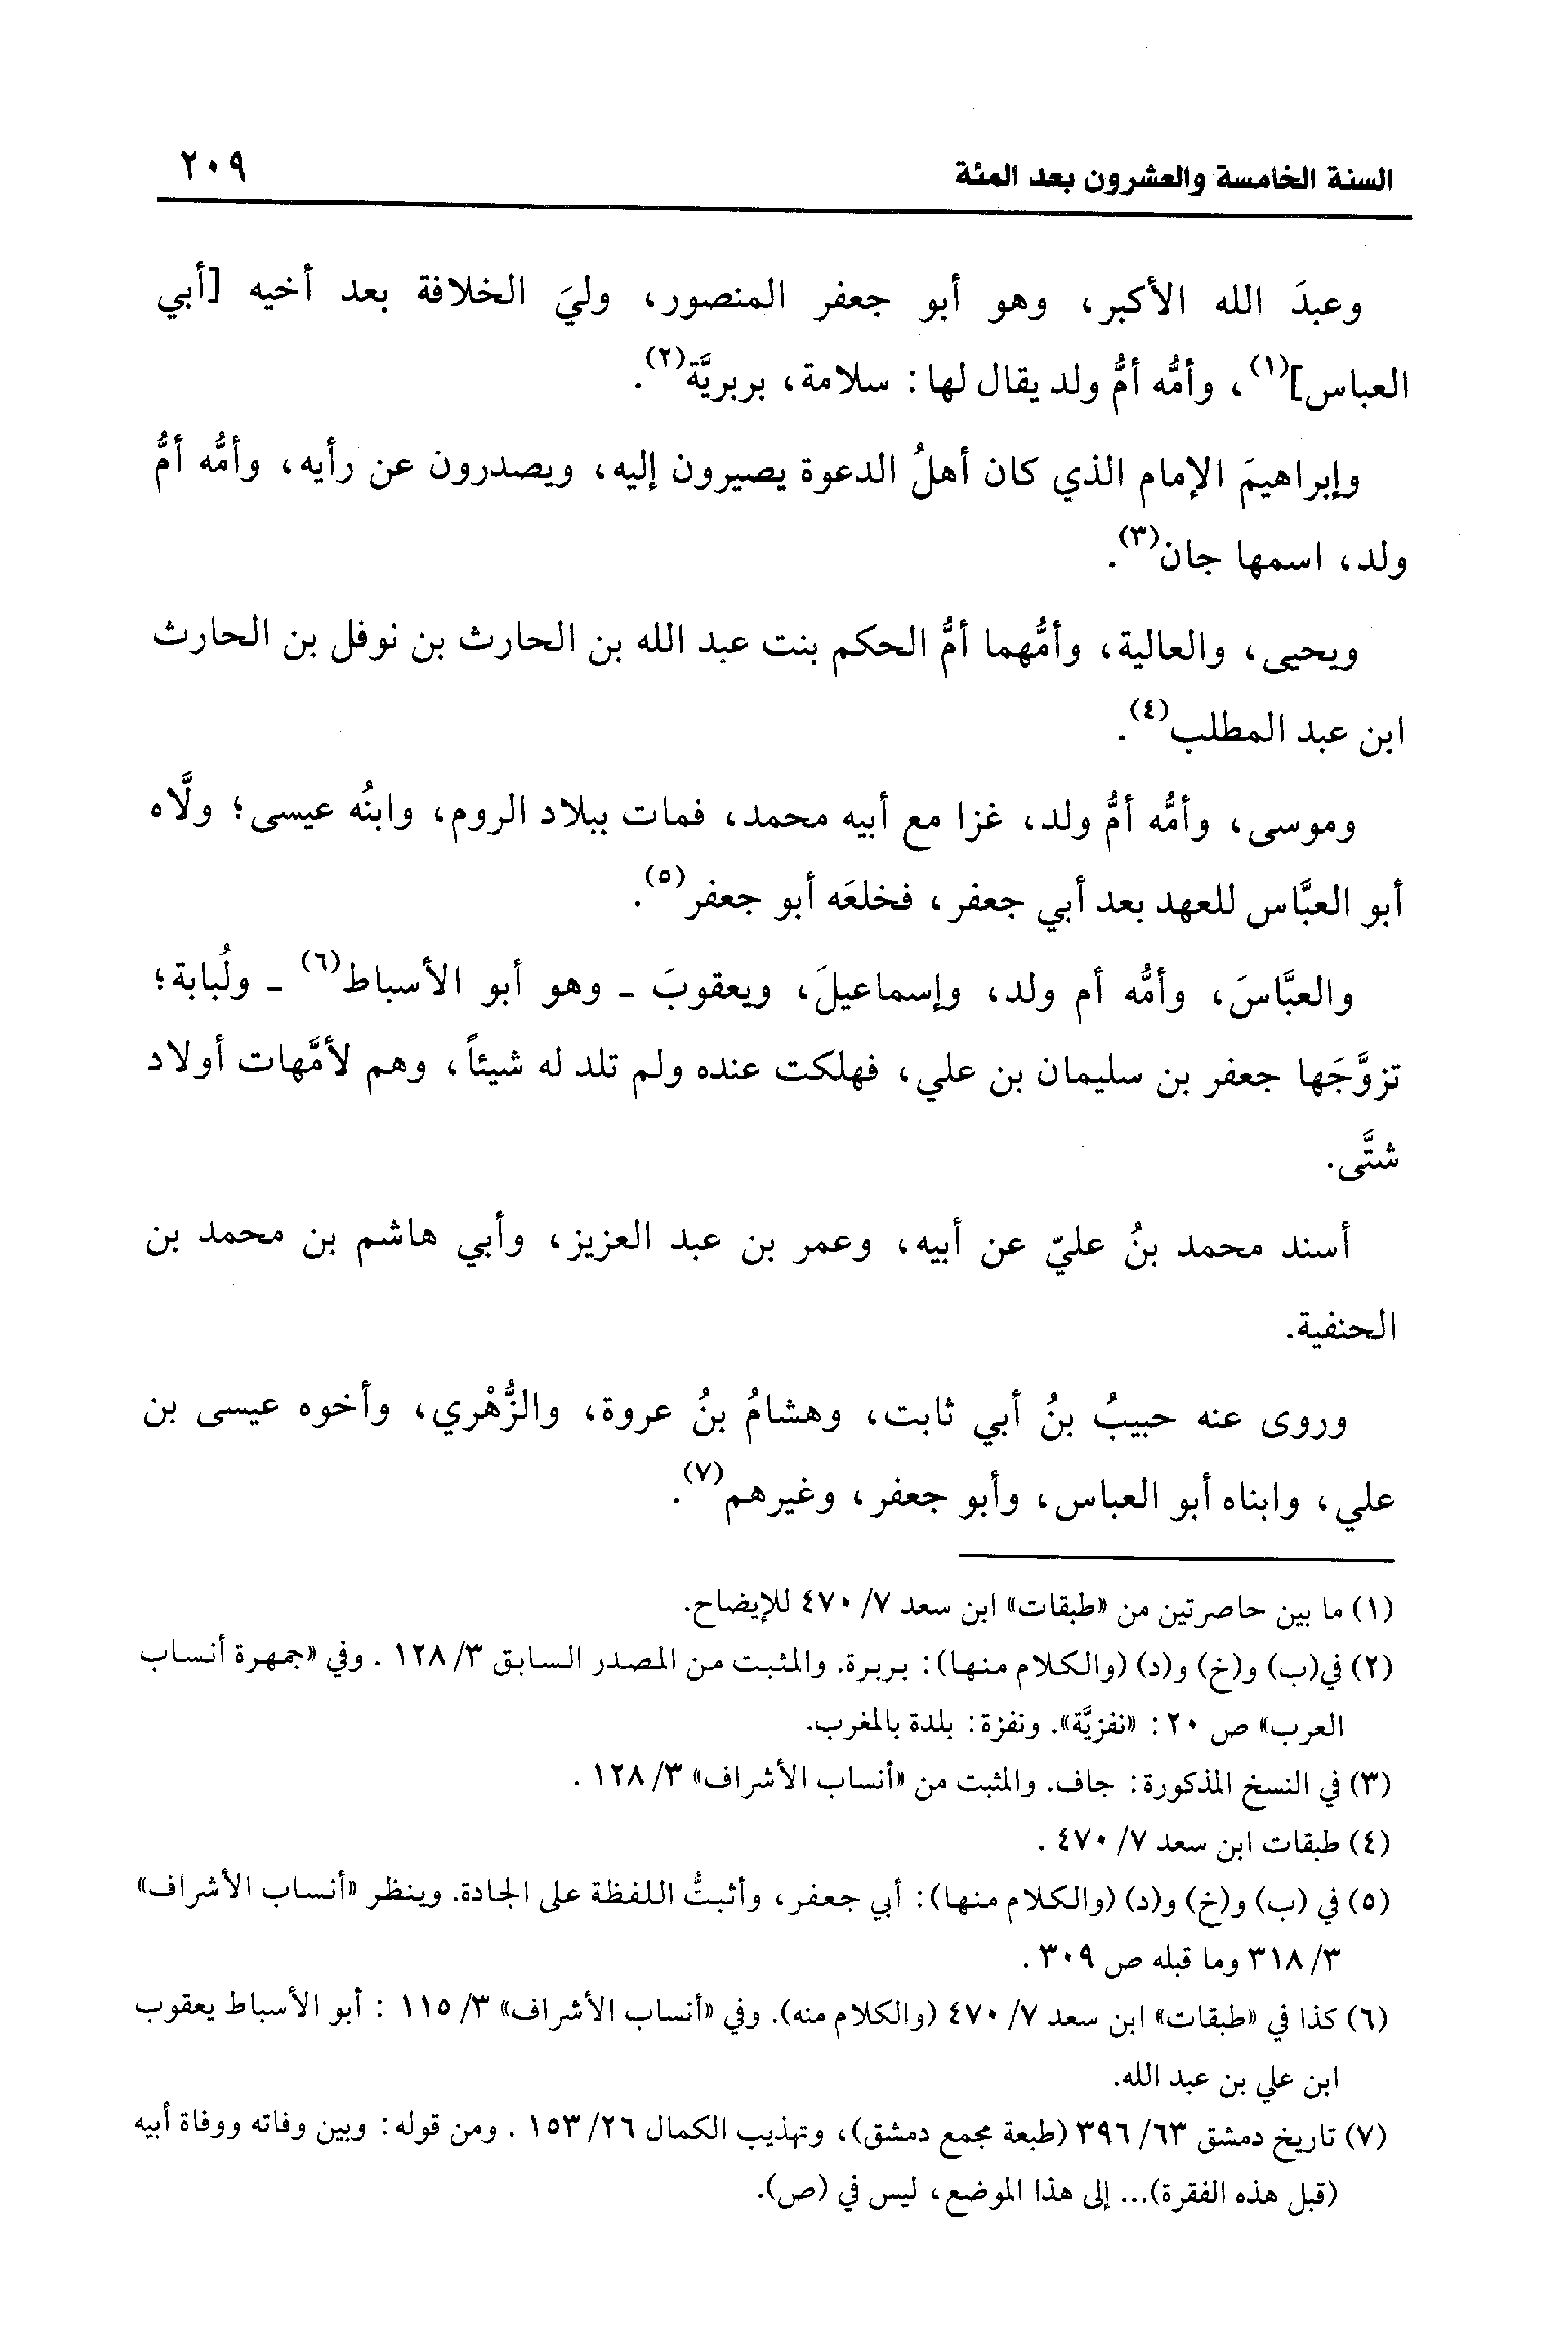 السنة الخامسة والعشرون بعد المئة ٢٠٩
وعبدَ الله الأكبر، وهو أبو جعفر المنصور، وليَ الخلافة بعد أخيه [أبي
العباس](١)، وأمُّه أمُّ ولد يقال لها: سلامة، بربريَّة(٢).
وإبراهيمَ الإمام الذي كان أهلُ الدعوة يصيرون إليه، ويصدرون عن رأيه، وأمُّه أمُّ
ولد، اسمها جان(٣).
ويحيى، والعالية، وأمُّهما أمُّ الحكم بنت عبد الله بن الحارث بن نوفل بن الحارث
ابن عبد المطلب(٤).
وموسى، وأمُّه أمُّ ولد، غزا مع أبيه محمد، فمات ببلاد الروم، وابنُه عيسى؛ ولَّاه
أبو العبَّاس للعهد بعد أبي جعفر، فخلعَه أبو جعفر(٥).
والعبَّاسَ، وأمُّه أم ولد، وإسماعيلَ، ويعقوبَ ـ وهو أبو الأسباط(٦) ـ ولُبابة؛
تزوَّجَها جعفر بن سليمان بن علي، فهلكت عنده ولم تلد له شيئاً، وهم لأمَّهات أولاد
شتَّى.
أسند محمد بنُ عليّ عن أبيه، وعمر بن عبد العزيز، وأبي هاشم بن محمد بن
الحنفية.
وروى عنه حبيبُ بنُ أبي ثابت، وهشامُ بنُ عروة، والزُّهْري، وأخوه عيسى بن
علي، وابناه أبو العباس، وأبو جعفر، وغيرهم(٧).
(١) ما بين حاصرتين من «طبقات» ابن سعد ٧/ ٤٧٠ للإيضاح.
(٢) في(ب) و(خ) و(د) (والكلام منها): بربرة. والمثبت من المصدر السابق ٣/ ١٢٨ . وفي «جمهرة أنساب
العرب» ص ٢٠ : «نفزيَّة». ونفزة: بلدة بالمغرب.
(٣) في النسخ المذكورة: جاف. والمثبت من «أنساب الأشراف» ٣/ ١٢٨ .
(٤) طبقات ابن سعد ٧/ ٤٧٠ .
(٥) في (ب) و(خ) و(د) (والكلام منها): أبي جعفر، وأثبتُّ اللفظة على الجادة. وينظر «أنساب الأشراف»
٣/ ٣١٨ وما قبله ص ٣٠٩ .
(٦) كذا في «طبقات» ابن سعد ٧/ ٤٧٠ (والكلام منه). وفي «أنساب الأشراف» ٣/ ١١٥ : أبو الأسباط يعقوب
ابن علي بن عبد الله.
(٧) تاريخ دمشق ٦٣/ ٣٩٦ (طبعة مجمع دمشق)، وتهذيب الكمال ٢٦/ ١٥٣ . ومن قوله: وبين وفاته ووفاة أبيه
(قبل هذه الفقرة)... إلى هذا الموضع، ليس في (ص).